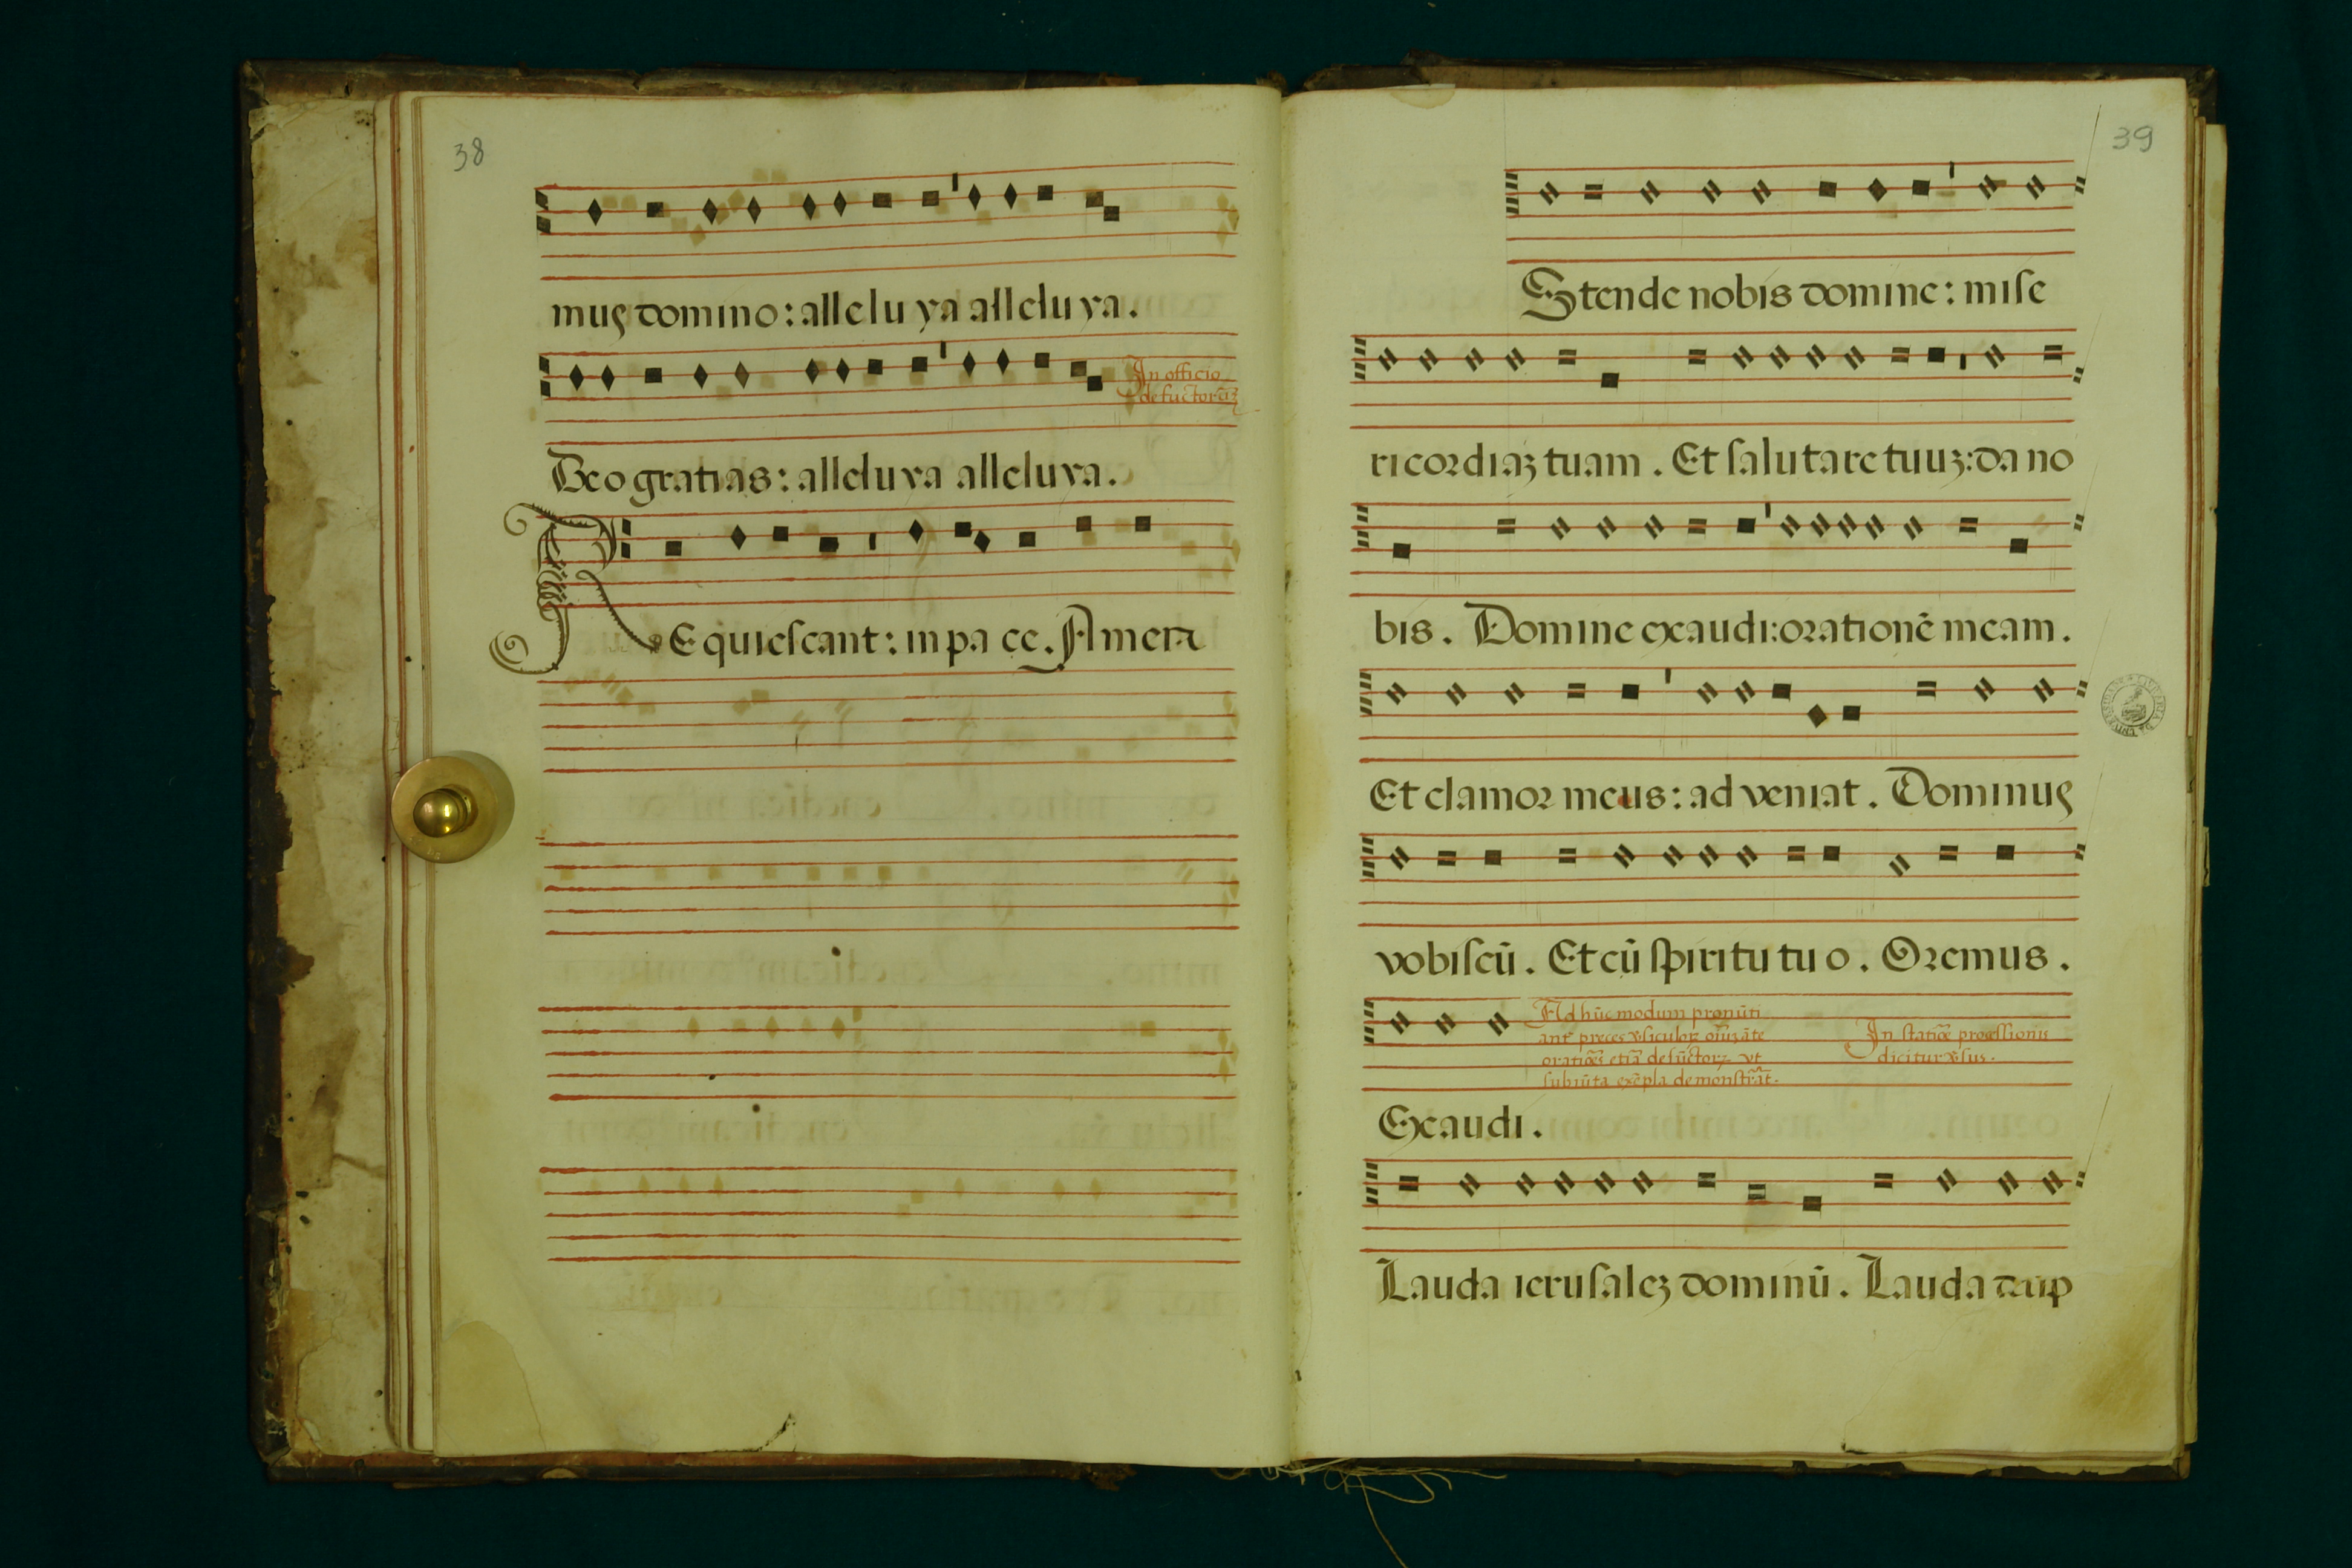 38
mus domino: allelu ya alleluya.
In officio
defũctorũ
Deo gratias: alleluya alleluya.
REquiescant: in pa ce. Amen
39
Ostende nobis domine: mise
ricordiaʒ tuam. Et salutare tuuʒ: da no
bis. Domine exaudi: orationẽ meam.
Et clamor meus: ad veniat. Dominus
vobiscũ. Et cũ spiritu tu o. Oremus.
Ad hũc modum pronũti
ant preces
oratiões etiã defũctorʒ vt
subiũta exẽpla demonstrãt.
In statiõe processionis
dicitur v̉sus.
Exaudi.
Lauda ierusaleʒ dominũ. Lauda